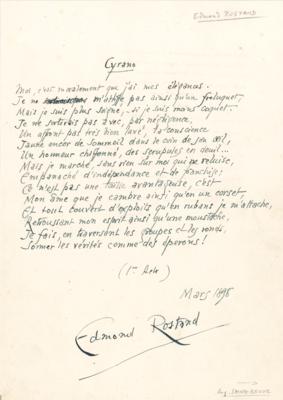 Edmond ROSTAND
Cyrano
Moi, c'est moralement que j'ai mes élégances.
Je ne m'attife pas ainsi qu'un freluquet,
Mais je suis plus soigné, si je suis moins coquet.
Je ne sortirais pas avec, par négligence,
Un affront pas très bien lavé, la conscience
Jaune encor de sommeil dans le coin de son œil,
Un honneur chiffonné, des scrupules en deuil...
Mais je marche, sans rien sur moi qui ne reluise,
Empanaché d'indépendance et de franchise;
Ce n'est pas une taille avantageuse, c'est
Mon âme que je cambre ainsi qu'en un corset,
Et tout couvert d'exploits qu'en rubans je m'attache,
Retroussant mon esprit ainsi qu'une moustache,
Je fais, en traversant les groupes et les ronds,
Sonner les vérités comme des éperons!
(1er Acte)
Mars 1898
Edmond Rostand